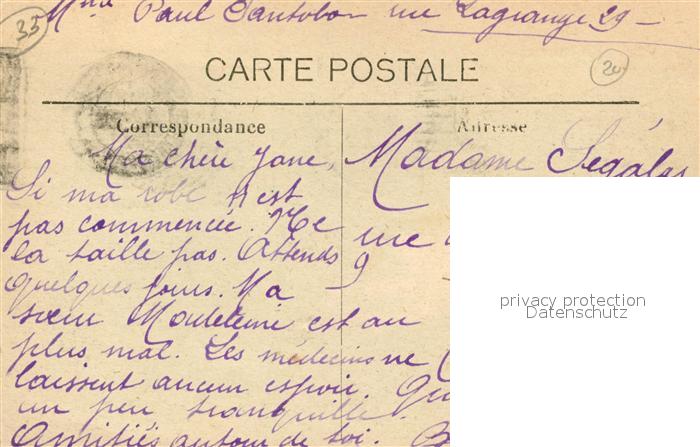 33
Mme Paul Santobo rue Lagrange 29 -
CARTE POSTALE
20
Correspondance
Adresse
Ma chère Jane,
Si ma robe n'est
pas commencée. Ne
la taille pas. Attends
quelques jours. Ma
sœur Madeleine est au
plus mal. Les médecins ne
laissent aucun espoir.
un peu tranquille.
Amitiés autour de toi.
Madame Ségalas
rue
9
privacy protection
Datenschutz